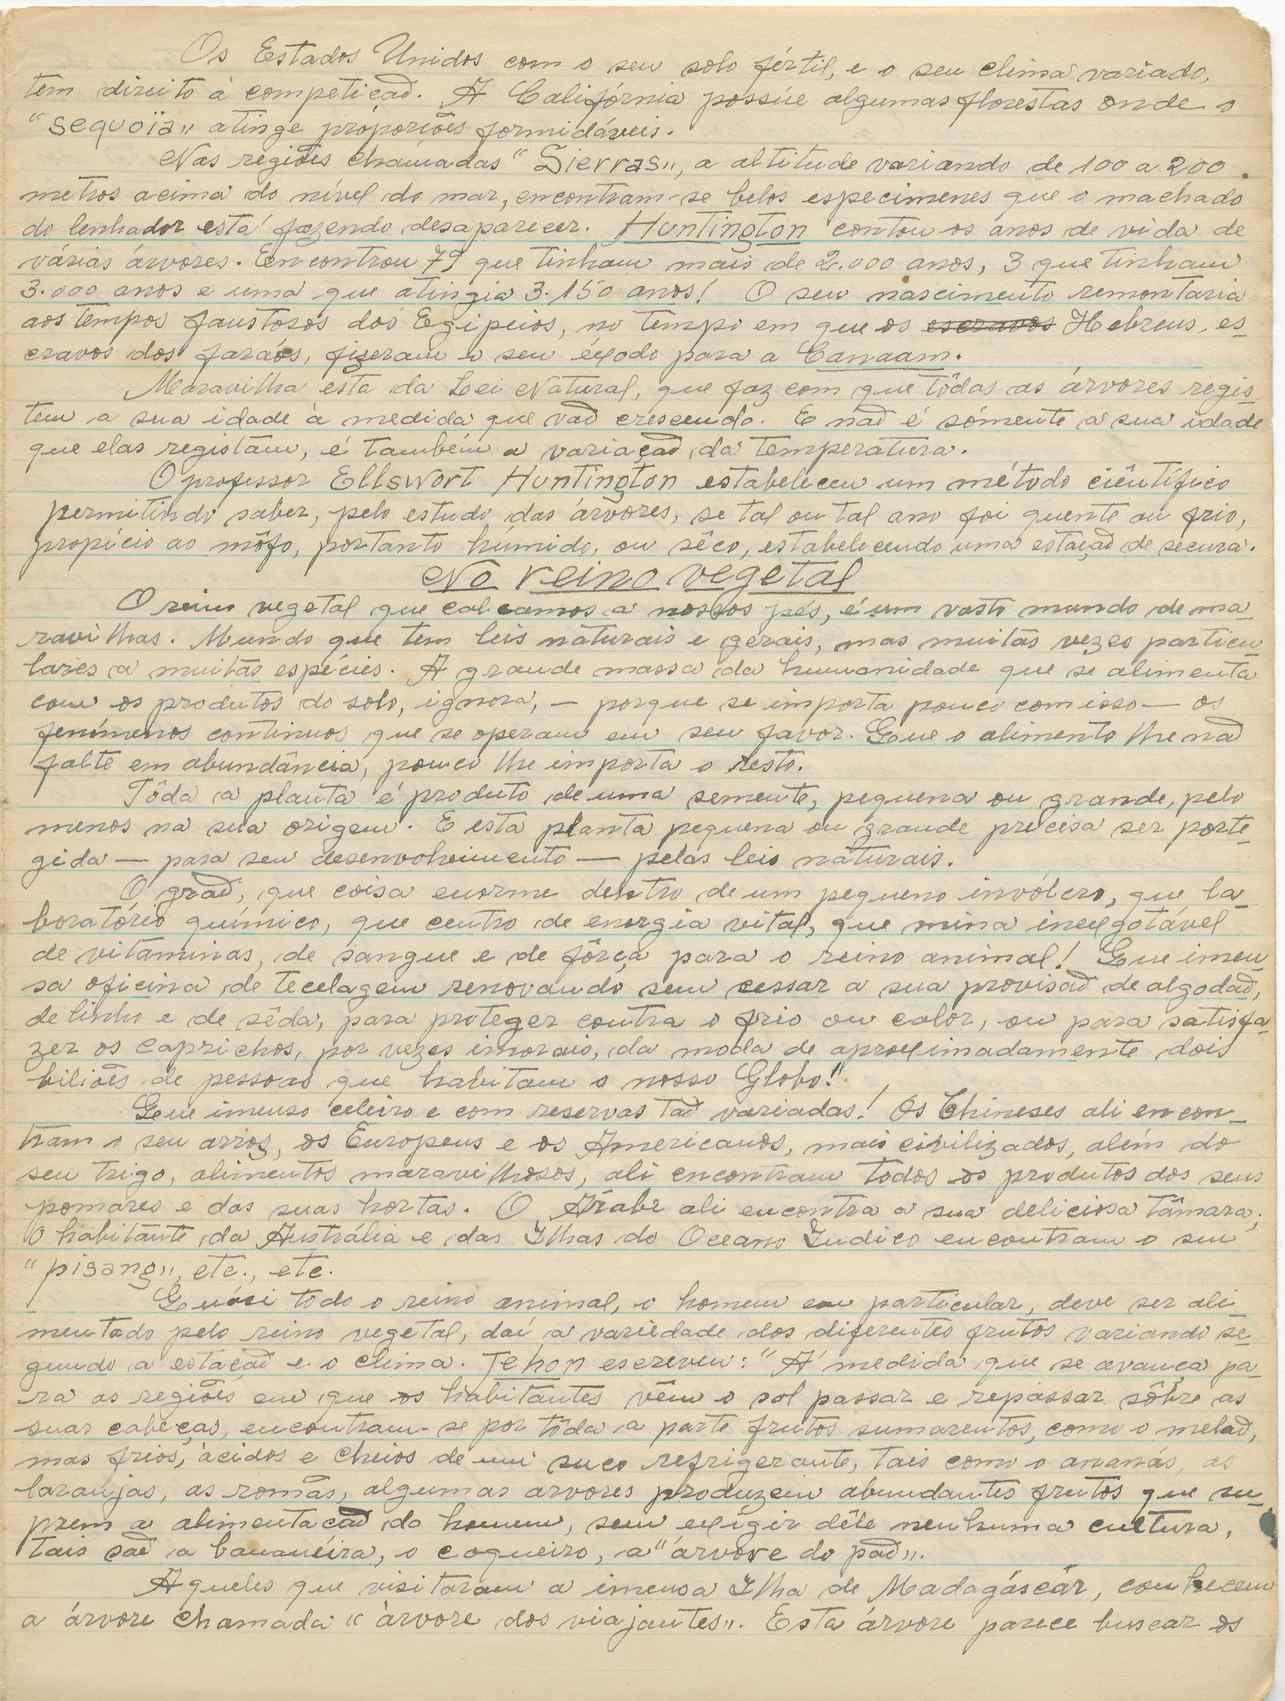 Os Estados Unidos com o seu solo fértil, e o seu clima variado,
tem direito à competição. A Califórnia possúe algumas florestas onde o
"sequoïa" atinge proporiões formidáveis.
Nas regiões chamadas "Sierras", a altitude variando de 100 a 200
metros acima do nível do mar, encontram-se belos especimenes que o machado
do lenhador está fazendo desaparecer. Huntington contou os anos de vida de
várias árvores. Encontrou 79 que tinham mais de 2.000 anos, 3 que tinham
3.000 anos e uma que atingia 3.150 anos! O seu nascimento remontaria
aos tempos faustosos dos Egipcios, no tempo em que os escravos Hebreus, es-
cravos dos faraós, fizeram o seu éxodo para a Canaam.
Maravilha esta da Lei Natural, que faz com que tôdas as árvores regis-
tem a sua idade à medida que vão crescendo. E não é sómente a sua idade
que elas registam, é também a variação da temperatura.
O professor Ellswort Huntington estabeleceu um método ciêntífico
permitindo saber, pelo estudo das árvores, se tal ou tal ano foi quente ou frio,
propício ao môfo, portanto húmido, ou sêco, estabelecendo uma estação de secura.
No reino vegetal
O reino vegetal que calcamos a nossos pés, é um vasto mundo de ma-
ravilhas. Mundo que tem leis naturais e gerais, mas muitas vezes particu-
lares a muitas espécies. A grande massa da humanidade que se alimenta
com os produtos do solo, ignora, — porque se importa pouco com isso — os
fenímenos continuos que se operam em seu favor. Que o alimento lhe não
falte em abundância, pouco lhe importa o resto.
Tôda a planta é produto de uma semente, pequena ou grande, pelo
menos na sua origem. E esta planta pequena ou grande precisa ser porte-
gida — para seu desenvolvimento — pelas leis naturais.
O grão, que coisa enorme dentro de um pequeno invólcro, que la-
boratório químico, que centro de energia vital, que mina inexgotável
de vitaminas, de sangue e de fôrça para o reino animal! Que imen-
sa oficina de tecelagem renovando sem cessar a sua provisão de algodão,
de linho e de sêda, para proteger contra o frio ou calor, ou para satisfa-
zer os caprichos, por vezes imorais, da moda de aproximadamente dois
biliões de pessoas que habitam o nosso Globo!"
Que imenso celeiro e com reservas tão variadas! Os Chineses ali encon-
tram o seu arroz, os Europeus e os Americanos, mais civilizados, além do
seu trigo, alimentos maravilhosos, ali encontram todos os produtos dos seus
pomares e das suas hortas. O Árabe ali encontra a sua deliciosa tâmara;
o habitante da Austrália e das Ilhas do Oceano Indico encontram o seu
"pisang", etc., etc.
Quási todo o reino animal, o homem em particular, deve ser ali-
mentado pelo reino vegetal, daí a variedade dos diferentes frutos variando se-
gundo a estação e o clima. Jehon escreveu: "À medida que se avança pa-
ra as regiões em que os habitantes vêm o sol passar e repassar sôbre as
suas cabeças, encontram-se por tôda a parte frutos sumarentos, como o melão,
mas frios, ácidos e cheios de um suco refrigerante, tais como o ananás, as
laranjas, as romãs, algumas arvores produzem abundantes frutos que su-
prem a alimentação do homem, sem exigir dêle nenhuma cultura,
tais são a bananéira, o coqueiro, a "arvore do pão".
Aqueles que visitaram a imensa Ilha de Madagáscár, conhecem
a árvore chamada "àrvore dos viajantes". Esta árvore parece buscar os